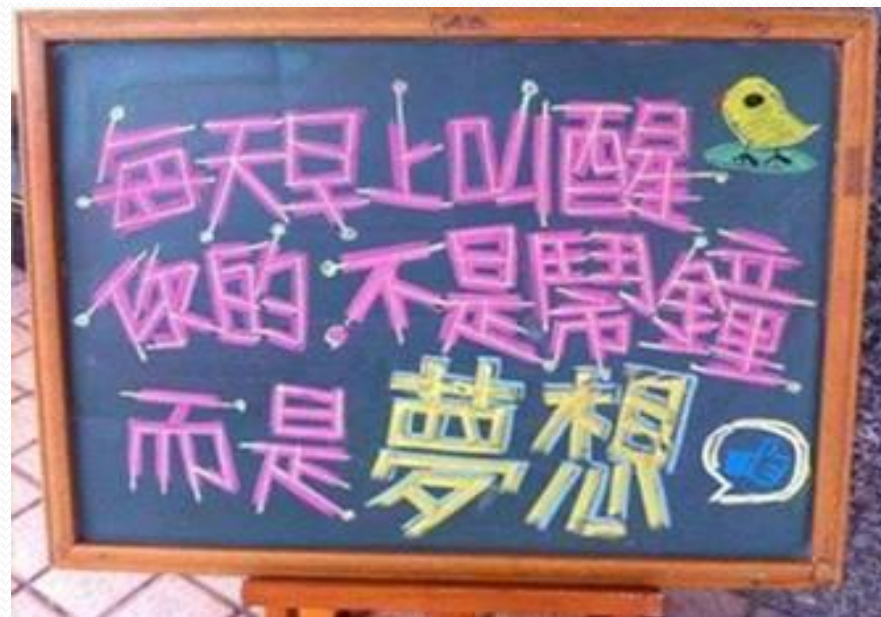 每天早上叫醒
你的不是鬧鐘
而是夢想